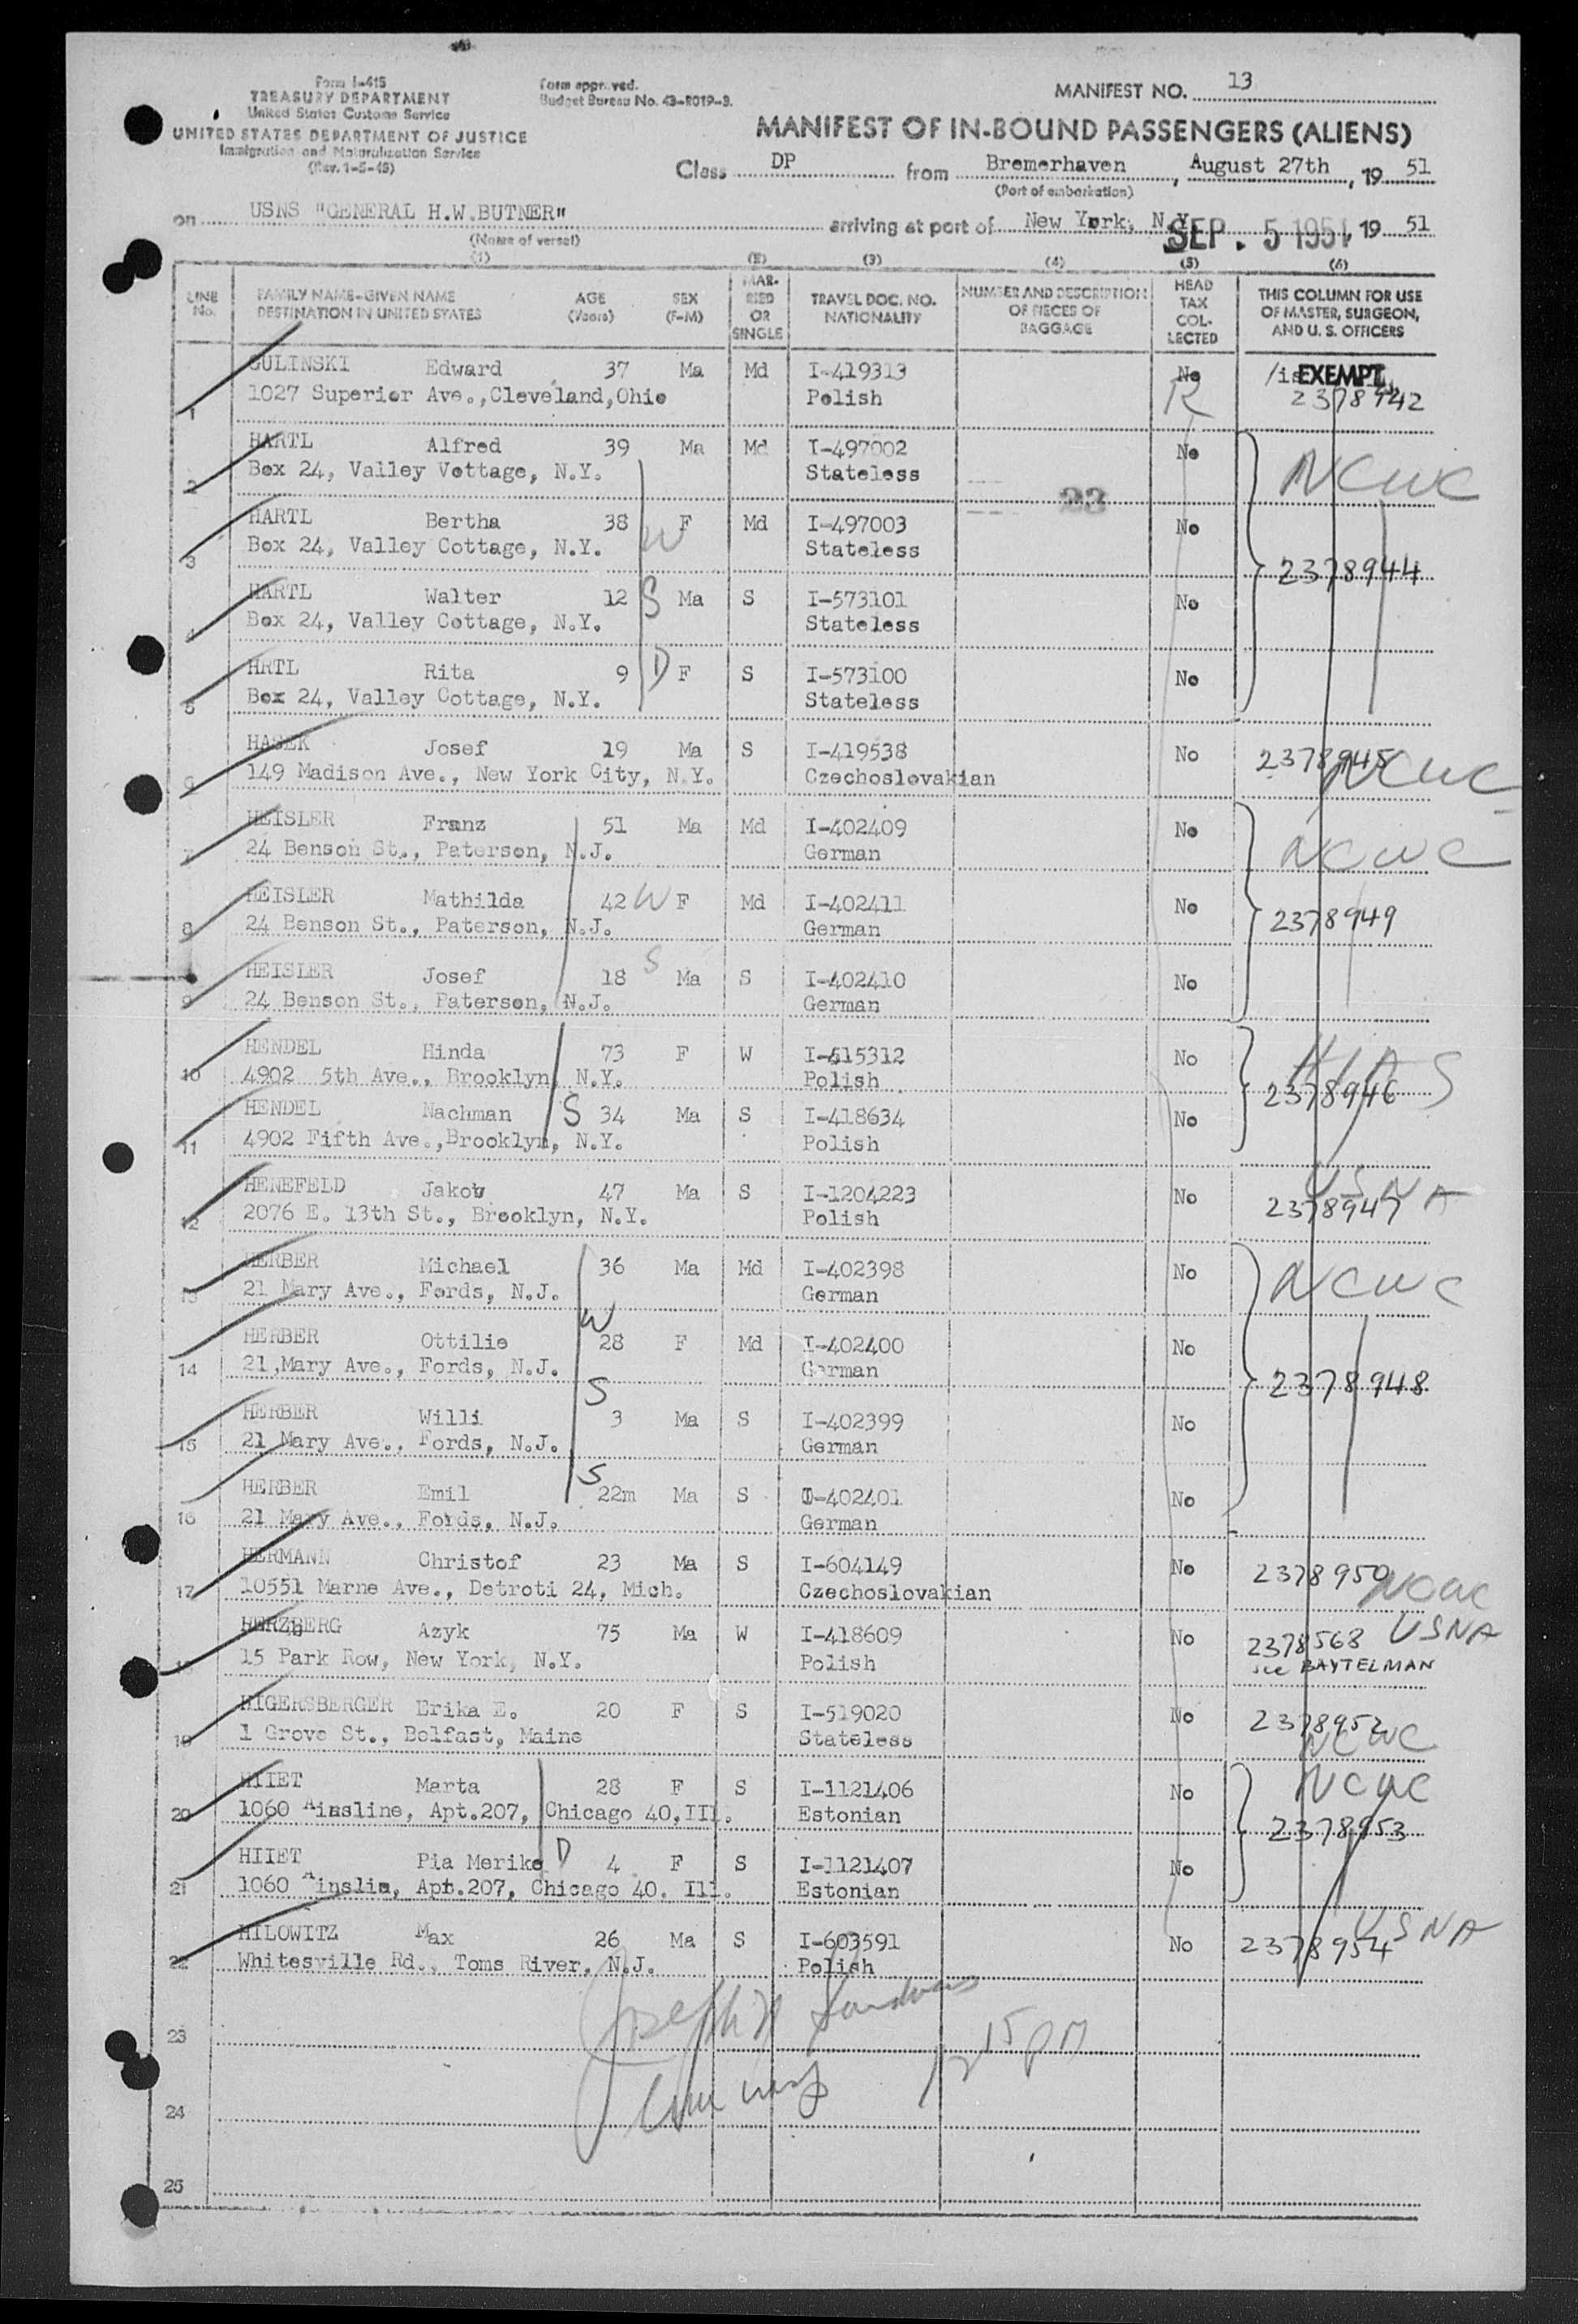 Form I-415
TREASURY DEPARTMENT
United States Customs Service
UNITED STATES DEPARTMENT OF JUSTICE
Immigration and Naturalization Service
(Rev. 1-5-49)
Form approved.
Budget Bureau No. 43-R019-3.
MANIFEST NO. 13
MANIFEST OF IN-BOUND PASSENGERS (ALIENS)
Class DP from Bremerhaven, August 27th, 19 51
(Port of embarkation)
on USNS "GENERAL H.W.BUTNER" arriving at port of New York, N.Y. SEP. 5 1951, 19 51
(Name of vessel)
(1) (2) (3) (4) (5) (6)
LINE No. FAMILY NAME-GIVEN NAME DESTINATION IN UNITED STATES AGE (Years) SEX (F-M) MARRIED OR SINGLE TRAVEL DOC. NO. NATIONALITY NUMBER AND DESCRIPTION OF PIECES OF BAGGAGE HEAD TAX COLLECTED THIS COLUMN FOR USE OF MASTER, SURGEON, AND U. S. OFFICERS
GULINSKI Edward 37 Ma Md I-419313 No EXEMPT
1 1027 Superior Ave.,Cleveland,Ohio Polish R 2378942
HARTL Alfred 39 Ma Md I-497002 No NCWC
2 Box 24, Valley Vottage, N.Y. Stateless
23
HARTL Bertha 38 F Md I-497003 No
3 Box 24, Valley Cottage, N.Y. W Stateless 2378944
HARTL Walter 12 S Ma S I-573101 No
4 Box 24, Valley Cottage, N.Y. Stateless
HRTL Rita 9 D F S I-573100 No
5 Box 24, Valley Cottage, N.Y. Stateless
HASEK Josef 19 Ma S I-419538 No 2378945
6 149 Madison Ave., New York City, N.Y. Czechoslovakian NCWC
HEISLER Franz 51 Ma Md I-402409 No
7 24 Benson St., Paterson, N.J. German NCWC
HEISLER Mathilda 42 W F Md I-402411 No
8 24 Benson St., Paterson, N.J. German 2378949
HEISLER Josef 18 S Ma S I-402410 No
9 24 Benson St., Paterson, N.J. German
HENDEL Hinda 73 F W I-515312 No HIAS
10 4902 5th Ave., Brooklyn, N.Y. Polish 2378946
HENDEL Nachman S 34 Ma S I-418634 No
11 4902 Fifth Ave.,Brooklyn, N.Y. Polish
HENEFELD Jakob 47 Ma S I-1204223 No USNA
12 2076 E. 13th St., Brooklyn, N.Y. Polish 2378947
HERBER Michael 36 Ma Md I-402398 No NCWC
13 21 Mary Ave., Fords, N.J. German
W
HERBER Ottilie 28 F Md I-402400 No
14 21,Mary Ave., Fords, N.J. German 2378948
S
HERBER Willi 3 Ma S I-402399 No
15 21 Mary Ave., Fords, N.J. German
S
HERBER Emil 22m Ma S I-402401 No
16 21 Mary Ave., Fords, N.J. German
HERMANN Christof 23 Ma S I-604149 No 2378950
17 10551 Marne Ave., Detroti 24, Mich. Czechoslovakian NCWC
HERZBERG Azyk 75 Ma W I-418609 No 2378568 USNA
18 15 Park Row, New York, N.Y. Polish see BAYTELMAN
HIGERSBERGER Erika E. 20 F S I-519020 No 2378952
19 1 Grove St., Belfast, Maine Stateless NCWC
HIIET Marta 28 F S I-1121406 No NCWC
20 1060 Ainsline, Apt.207, Chicago 40.Ill. Estonian 2378953
HIIET Pia Merike D 4 F S I-1121407 No
21 1060 Ainslie, Apt.207, Chicago 40. Ill. Estonian
HILOWITZ Max 26 Ma S I-603591 No 2378954 USNA
22 Whitesville Rd., Toms River, N.J. Polish
23 Joseph 1215 PM
24
25